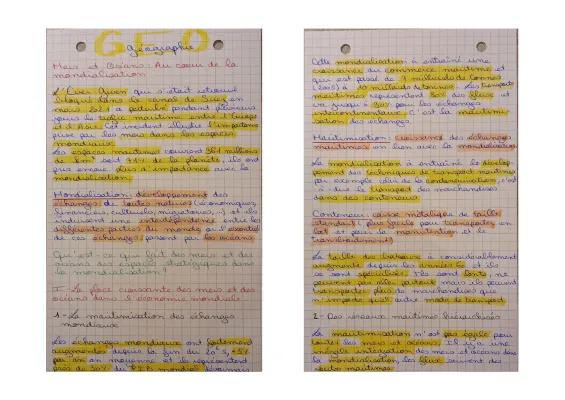 GEO
géographie
Mers et Océans : Au coeur de la
mondialisation
L'Ever Given qui s'était retrouvé
bloqué dans le canal de Suez en
mars 2021 a perturbé pendant plusieurs
jours le trafic maritime entre l'Europe
et l'Asie. Cet incident illustre l'importance
prise par les mers et les espaces
mondiaux.
Les espaces maritimes couvrent 361 millions
de km² soit 71% de la planète, ils ont
pris encore plus d'importance avec la
mondialisation.
Mondialisation : développement des
échanges de toutes natures (économiques,
financiers, culturels, migratoires, ...) et ils
induisent une interdépendance les
différentes parties du monde or l'essentiel
de ces échanges passent par les océans
Qu'est-ce qui fait des mers et des
océans des espaces stratégiques dans
la mondialisation ?
I - La place croissante des mers et des
océans dans l'économie mondiale
1 - La maritimisation des échanges
mondiaux
Les échanges mondiaux ont fortement
augmentés depuis la fin du 20e s, +5%
par an en moyenne et ils représentent
près de 30% du PIB mondial désormais
Cette mondialisation a entraîné une
croissance du commerce maritime et
qui est passé de 1 milliards de tonnes
à 10 milliards de tonnes. Les transports
maritimes représentent 80% des flux et
va jusqu'à 90% pour les échanges
intercontinentaux. C'est la maritimi-
sation des échanges.
Maritimisation : croissance des échanges
maritimes en lien avec la mondialisation
La mondialisation a entraîné le dévelop-
pement des techniques de transport maritimes
par exemple celui de la conteneurisation c'est
à dire le transport des marchandises
dans des conteneurs.
Conteneur : caisse métallique de taille
standard plus facile pour transporter en
lot et pour la manutention et le
transbordement
La taille des bateaux a considérablement
augmenté depuis les années et ils
se sont spécialisés. Ils sont lents, ne
peuvent pas aller partout mais ils peuvent
transporter plus de marchandises que
n'importe quel autre mode de transport
2 - Des réseaux maritimes hiérarchisés
La maritimisation n'est pas égale pour
toutes les mers et océans. Il y a une
inégale intégration des mers et océans dans
la mondialisation. Les flux suivent des
routes maritimes